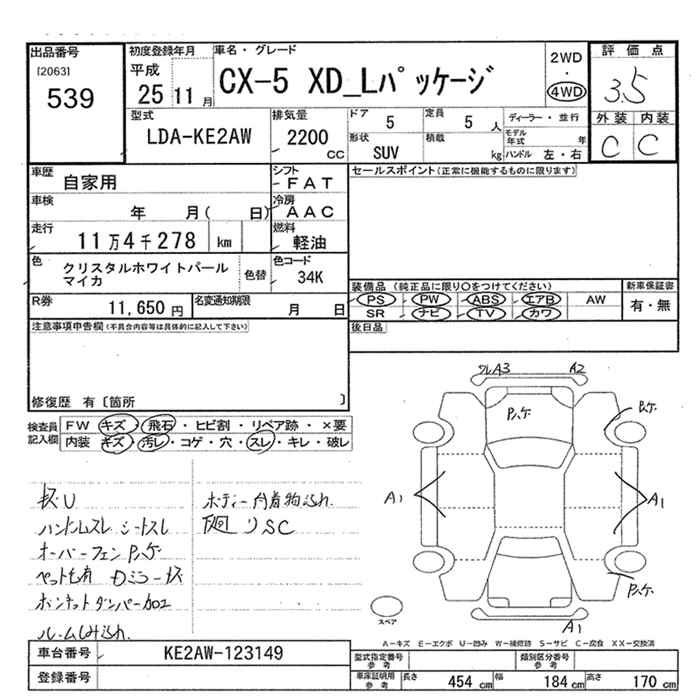 出品番号
[2063]
539
初度登録年月
平成
25 11 月
車名・グレード
CX-5 XD_Lパッケージ
2WD
・
4WD
評価点
3.5
外装 内装
C C
型式
LDA-KE2AW
排気量
2200
CC
ドア
5
定員
5 人
ディーラー・並行
形状
SUV
積載
kg
モデル年式 年
ハンドル 左・右
車歴
自家用
シフト
FAT
セールスポイント(正常に機能するものに限ります)
車検
年 月( 日)
冷房
AAC
走行
11万4千278 km
燃料
軽油
色
クリスタルホワイトパール
マイカ
色替
色コード
34K
装備品 (純正品に限り〇をつけてください)
新車保証書
PS PW ABS エアB AW
有・無
SR ナビ TV カワ
R券
11,650 円
名変通知期限
月 日
後日品
注意事項申告欄(不具合内容等は具体的に記入して下さい)
修復歴 有〔箇所 〕
検査員
記入欄
FW キズ・飛石・ヒビ割・リペア跡・×要
内装 キズ・汚レ・コゲ・穴・スレ・キレ・破レ
ハンドルスレ シートスレ
オーバーフェンPぃケ
ペット毛有 Dミラーキズ
ボンネットダンパー加工
ルームしみ汚れ
ボディー付着物汚れ
廻りSC
A3
A2
A1
A1
A1
スペア
A-キズ E-エクボ U-凹み W-補修跡 S-サビ C-腐食 XX-交換済
車台番号
KE2AW-123149
登録番号
型式指定番号
参考
類別区分番号
参考
車庫証明用
参考
長さ 454 cm
幅 184 cm
高さ 170 cm